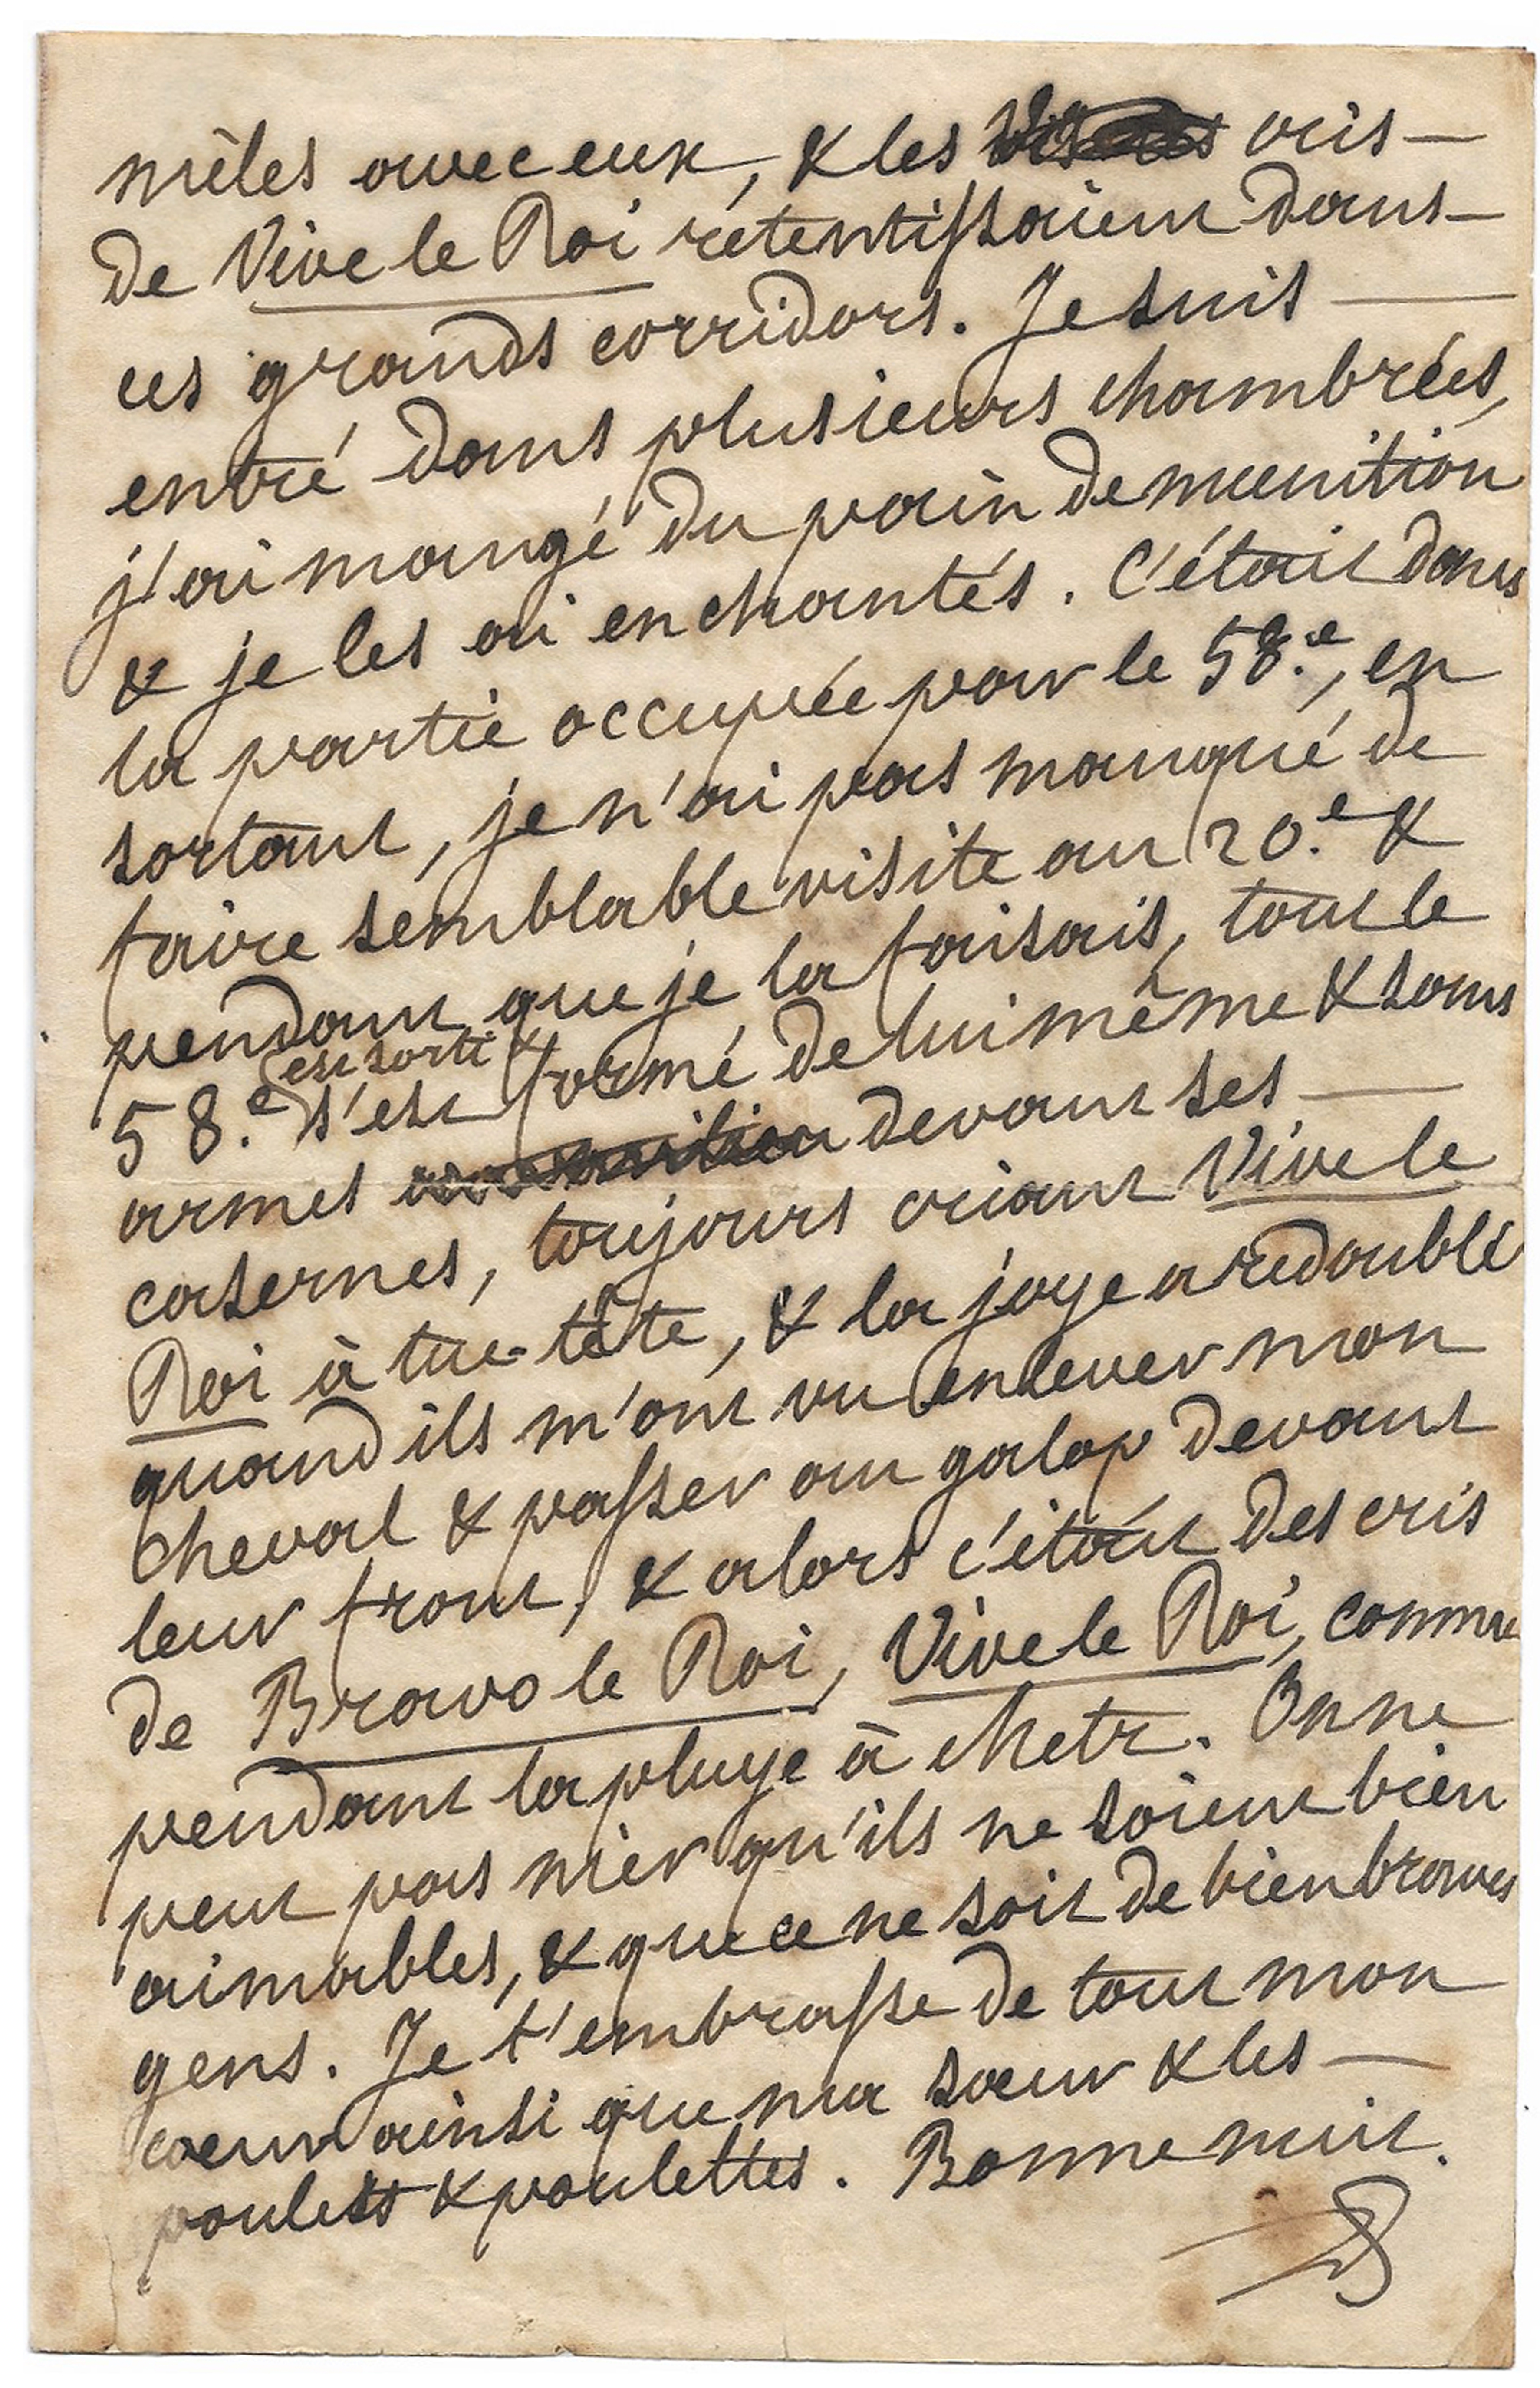 mêlés avec eux, & les cris
de Vive le Roi retentissaient dans
ces grands corridors. Je suis
entré dans plusieurs chambrées,
j'ai mangé du pain de munition
& je les ai enchantés. C'était dans
la partie occupée par le 58.e, en
sortant, je n'ai pas manqué de
faire semblable visite au 20.e &
pendant que je la faisais, tout le
est sorti &
58.e s'est formé de lui même & sans
armes devant ses
casernes, toujours criant Vive le
Roi à tue-tête, & la joye a redoublé
quand ils m'ont vu enlever mon
cheval & passer au galop devant
leur front, & alors c'était des cris
de Bravo le Roi, Vive le Roi, comme
pendant la pluye à Metz. On ne
peut pas nier qu'ils ne soient bien
aimables, & que ce ne soit de bien braves
gens. Je t'embrasse de tout mon
cœur ainsi que ma sœur & les
poulets & poulettes. Bonne nuit.